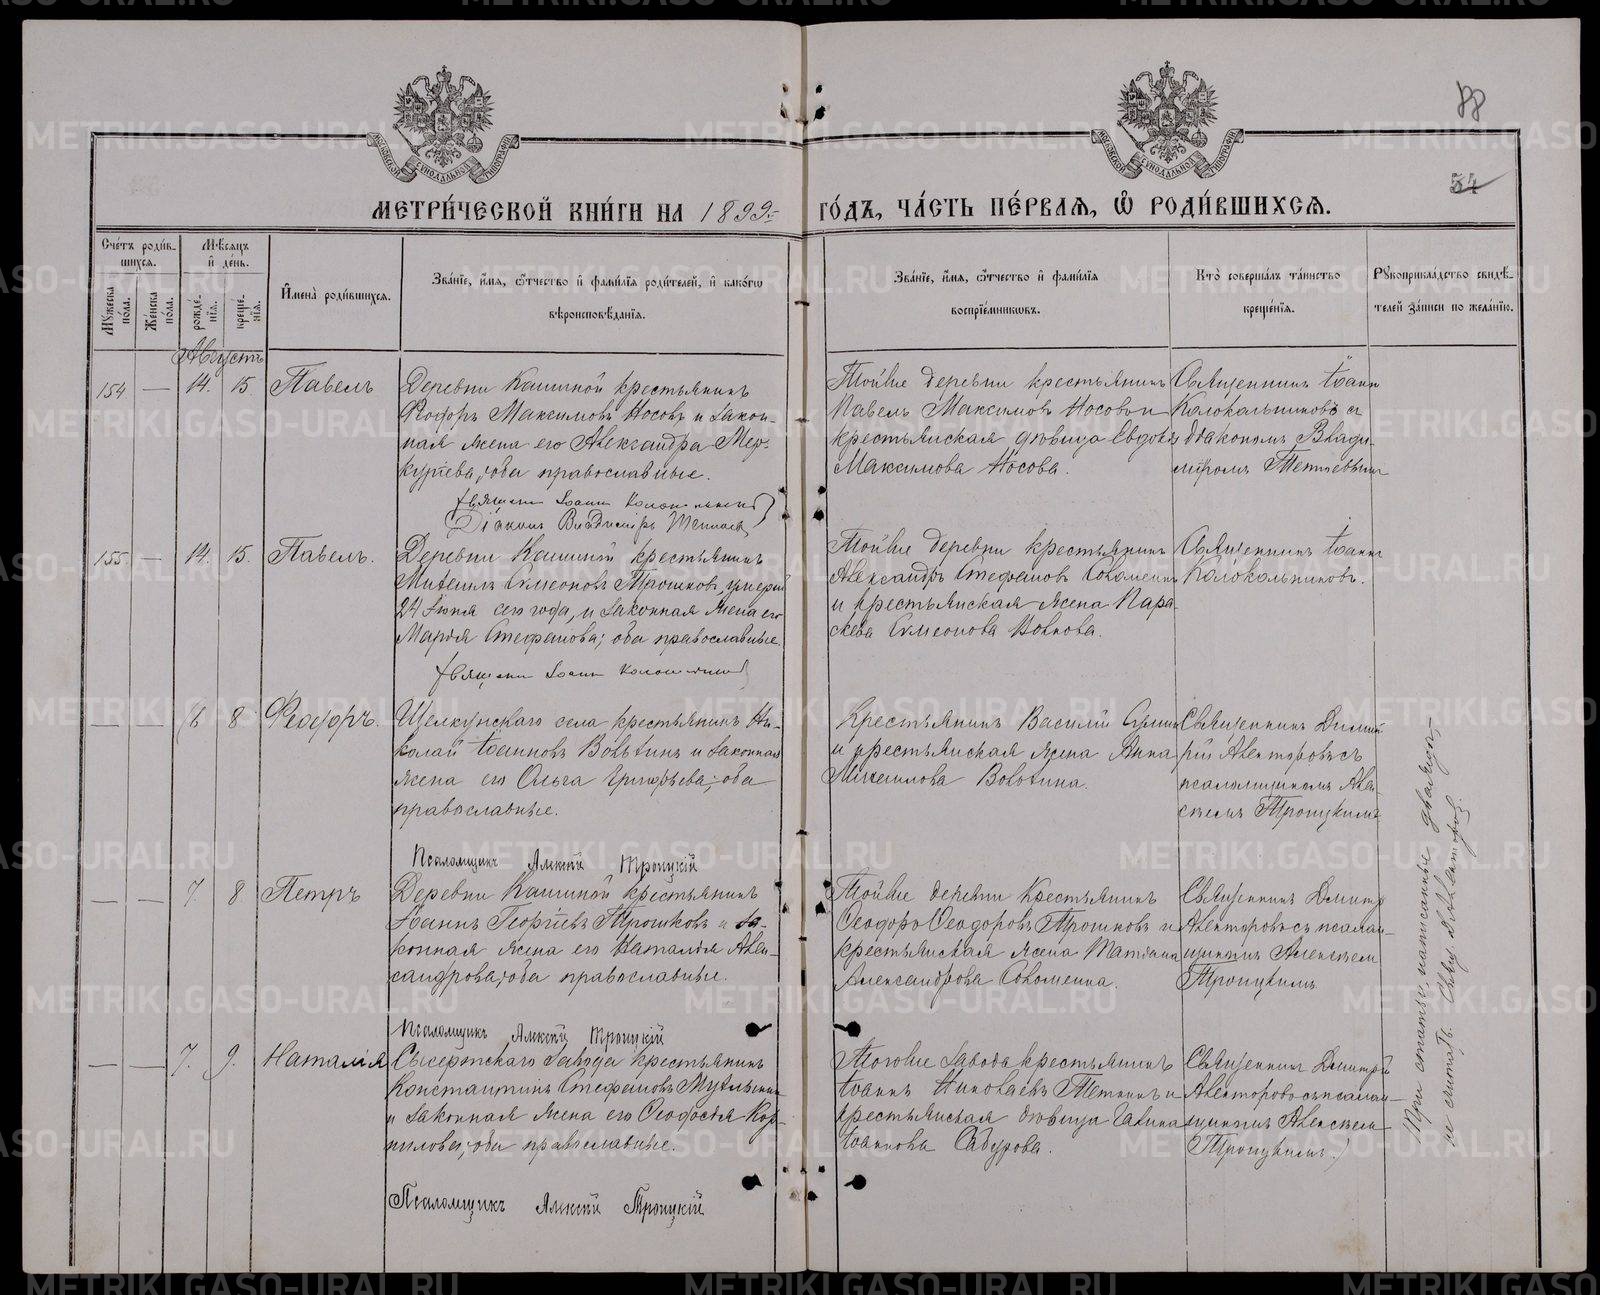 88
54
МЕТРИ́ЧЕСКОЙ КНИ́ГИ НА 1899 г.
ГО́ДЪ, ЧА́СТЬ ПЕ́РВАЯ, Ѡ РОДИ́ВШИХСЯ.
Сче́тъ роди́в-
шихся.
Му́жеска по́ла.
Же́нска по́ла.
Мѣ́сяцъ и де́нь.
рожде́нїя.
креще́нїя.
И҆мена̀ роди́вшихся.
Зва́нїе, и҆́мя, ѻ҆́тчество и҆ фами́лїя роди́телей, и҆ како́гѡ
вѣроисповѣ́данїя.
Зва́нїе, и҆́мя, ѻ҆́тчество и҆ фами́лїя
воспрїе́мниковъ.
Кто̀ соверша́лъ та́инство
креще́нїя.
Рꙋкоприкла́дство свидѣ́-
телей за́писи по жела́нїю.
Августъ
154 — 14. 15. Павелъ
Деревни Кашиной крестьянинъ
Ѳеодоръ Максимовъ Носовъ и закон-
ная жена его Александра Мер-
курiева; оба православные.
Священ Іоаннъ Колокольников
Діаконъ Владимиръ
Тойже деревни крестьянинъ
Павелъ Максимовъ Носовъ и
крестьянская дѣвица Евдокія
Максимова Носова.
Священникъ Іоаннъ
Колокольниковъ съ
діакономъ Влади-
міромъ
155 — 14. 15. Павелъ.
Деревни Кашиной крестьянинъ
Михаилъ Симеоновъ Трошковъ, умерш
24 Іюня сего года, и законная жена его
Марія Стефанова; оба православные.
Священ Іоаннъ Колокольников
Тойже деревни крестьянинъ
Александръ Стефановъ Соломеинъ
и крестьянская жена Пара-
скева Симеонова
Священникъ Іоаннъ
Колокольниковъ.
— — 6 8 Ѳеодоръ.
Щелкунскаго села крестьянинъ Ни-
колай Іоанновъ и законная
жена его Ольга Григорьева; оба
православные.
Псаломщикъ Алексій Троицкій
Крестьянинъ Василій
и крестьянская жена Анна
Михаилова
Священникъ Димит-
рій Авекторовъ съ
псаломщикомъ Але-
ксѣемъ Троицкимъ
— — 7 8 Петръ
Деревни Кашиной крестьянинъ
Іоаннъ Георгіевъ Трошковъ и за-
конная жена его Наталія Алек-
сандрова; оба православные.
Псаломщикъ Алексій Троицкій
Тойже деревни крестьянинъ
Ѳеодоръ Ѳеодоровъ Трошковъ и
крестьянская жена Татіана
Александрова Соломеина.
Священникъ Димитр
Авекторовъ съ псалом-
щикомъ Алексѣем
Троицкимъ
— — 7. 9. Наталія
Сысертскаго завода крестьянинъ
Константинъ Стефановъ
и законная жена его Ѳеодосія Кор-
нилова; оба православные.
Псаломщикъ Алексій Троицкій
Тогоже завода крестьянинъ
Іоаннъ Николаевъ и
крестьянская дѣвица Галина
Іоаннова Сабурова.
Священникъ Димитрій
Авекторовъ съ псалом-
щикомъ Алексѣемъ
Троицкимъ.)
При статьи, написанныя дважды,
не считать. Свящ. Д. Авекторов.
METRIKI.GASO-URAL.RU